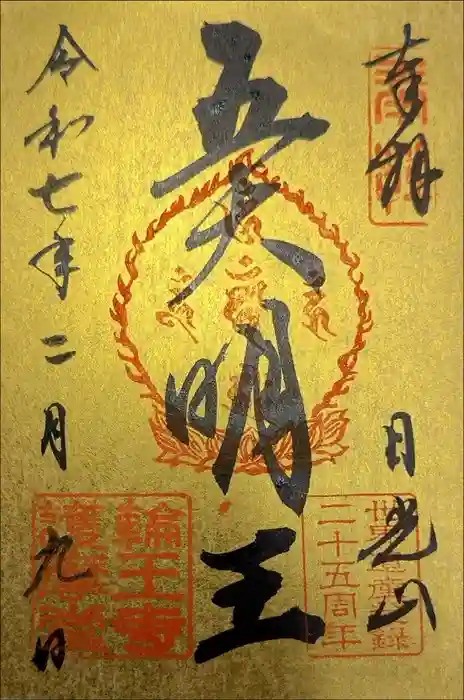 奉拝
日光山
五大明王
令和七年二月九日
世界遺産登録
二十五周年
輪王寺
護摩堂